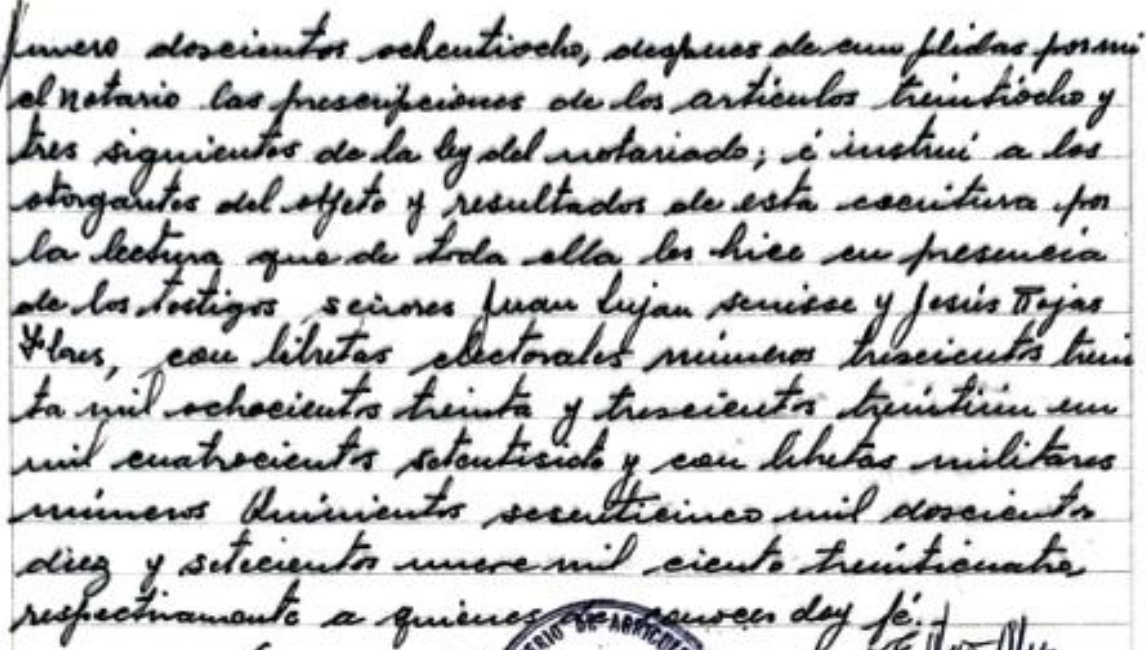 mero doscientos ochentiocho, despues de cumplidas por mi
el notario las prescripciones de los artículos treintiocho y
tres siguientes de la ley del notariado; é instruí a los
otorgantes del objeto y resultados de esta escritura por
la lectura que de toda ella les hice en presencia
de los testigos señores Juan Lujan Senisse y Jesús Rojas
Flores, con libretas electorales números trescientos trein
ta mil ochocientos treinta y trescientos treintiun
mil cuatrocientos setentisiete y con libretas militares
números Quinientos sesenticinco mil doscientos
diez y setecientos nueve mil ciento treinticuatro
respectivamente a quienes de conocer doy fé.
RIO DE AGRICU